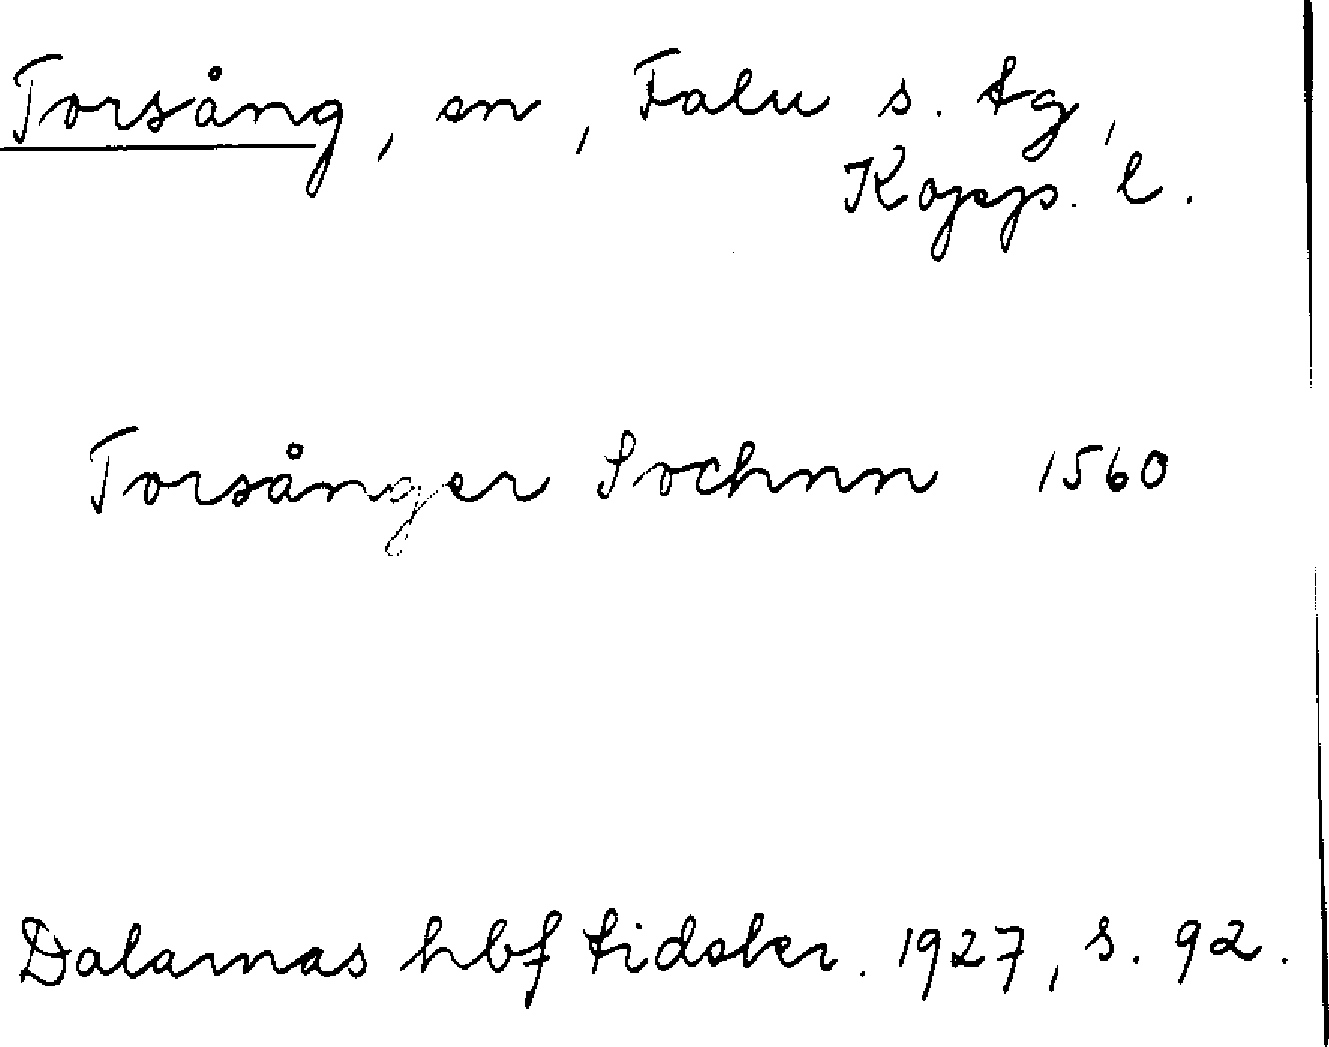 Torsång, sn, Falu s. tg,
Kopp. l.
Torsånger Sochnn 1560
Dalarnas hbf tidskr. 1927, s. 92.